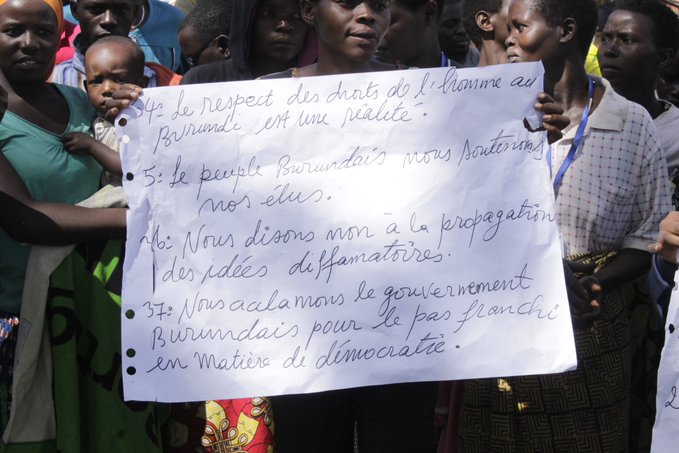 4: Le respect des droits de l'homme au
Burundi est une réalité.
5: Le peuple Burundais nous soutenons
nos élus.
Nous disons non à la propagation
des idées diffamatoires.
37: Nous acclamons le gouvernement
Burundais pour le pas franchi
en matière de démocratie.
2